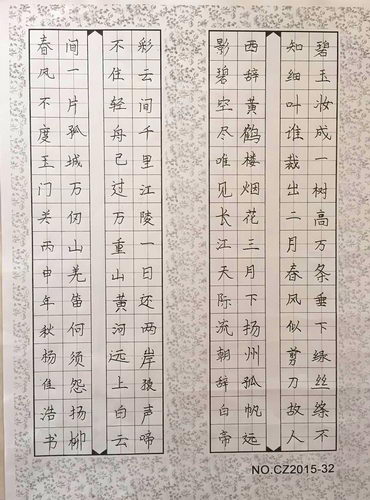 碧玉妆成一树高万条垂下绿丝绦不
知细叶谁裁出二月春风似剪刀故人
西辞黄鹤楼烟花三月下扬州孤帆远
影碧空尽唯见长江天际流朝辞白帝
彩云间千里江陵一日还两岸猿声啼
不住轻舟已过万重山黄河远上白云
间一片孤城万仞山羌笛何须怨扬柳
春风不度玉门关丙申年秋杨佳浩书
NO.CZ2015-32